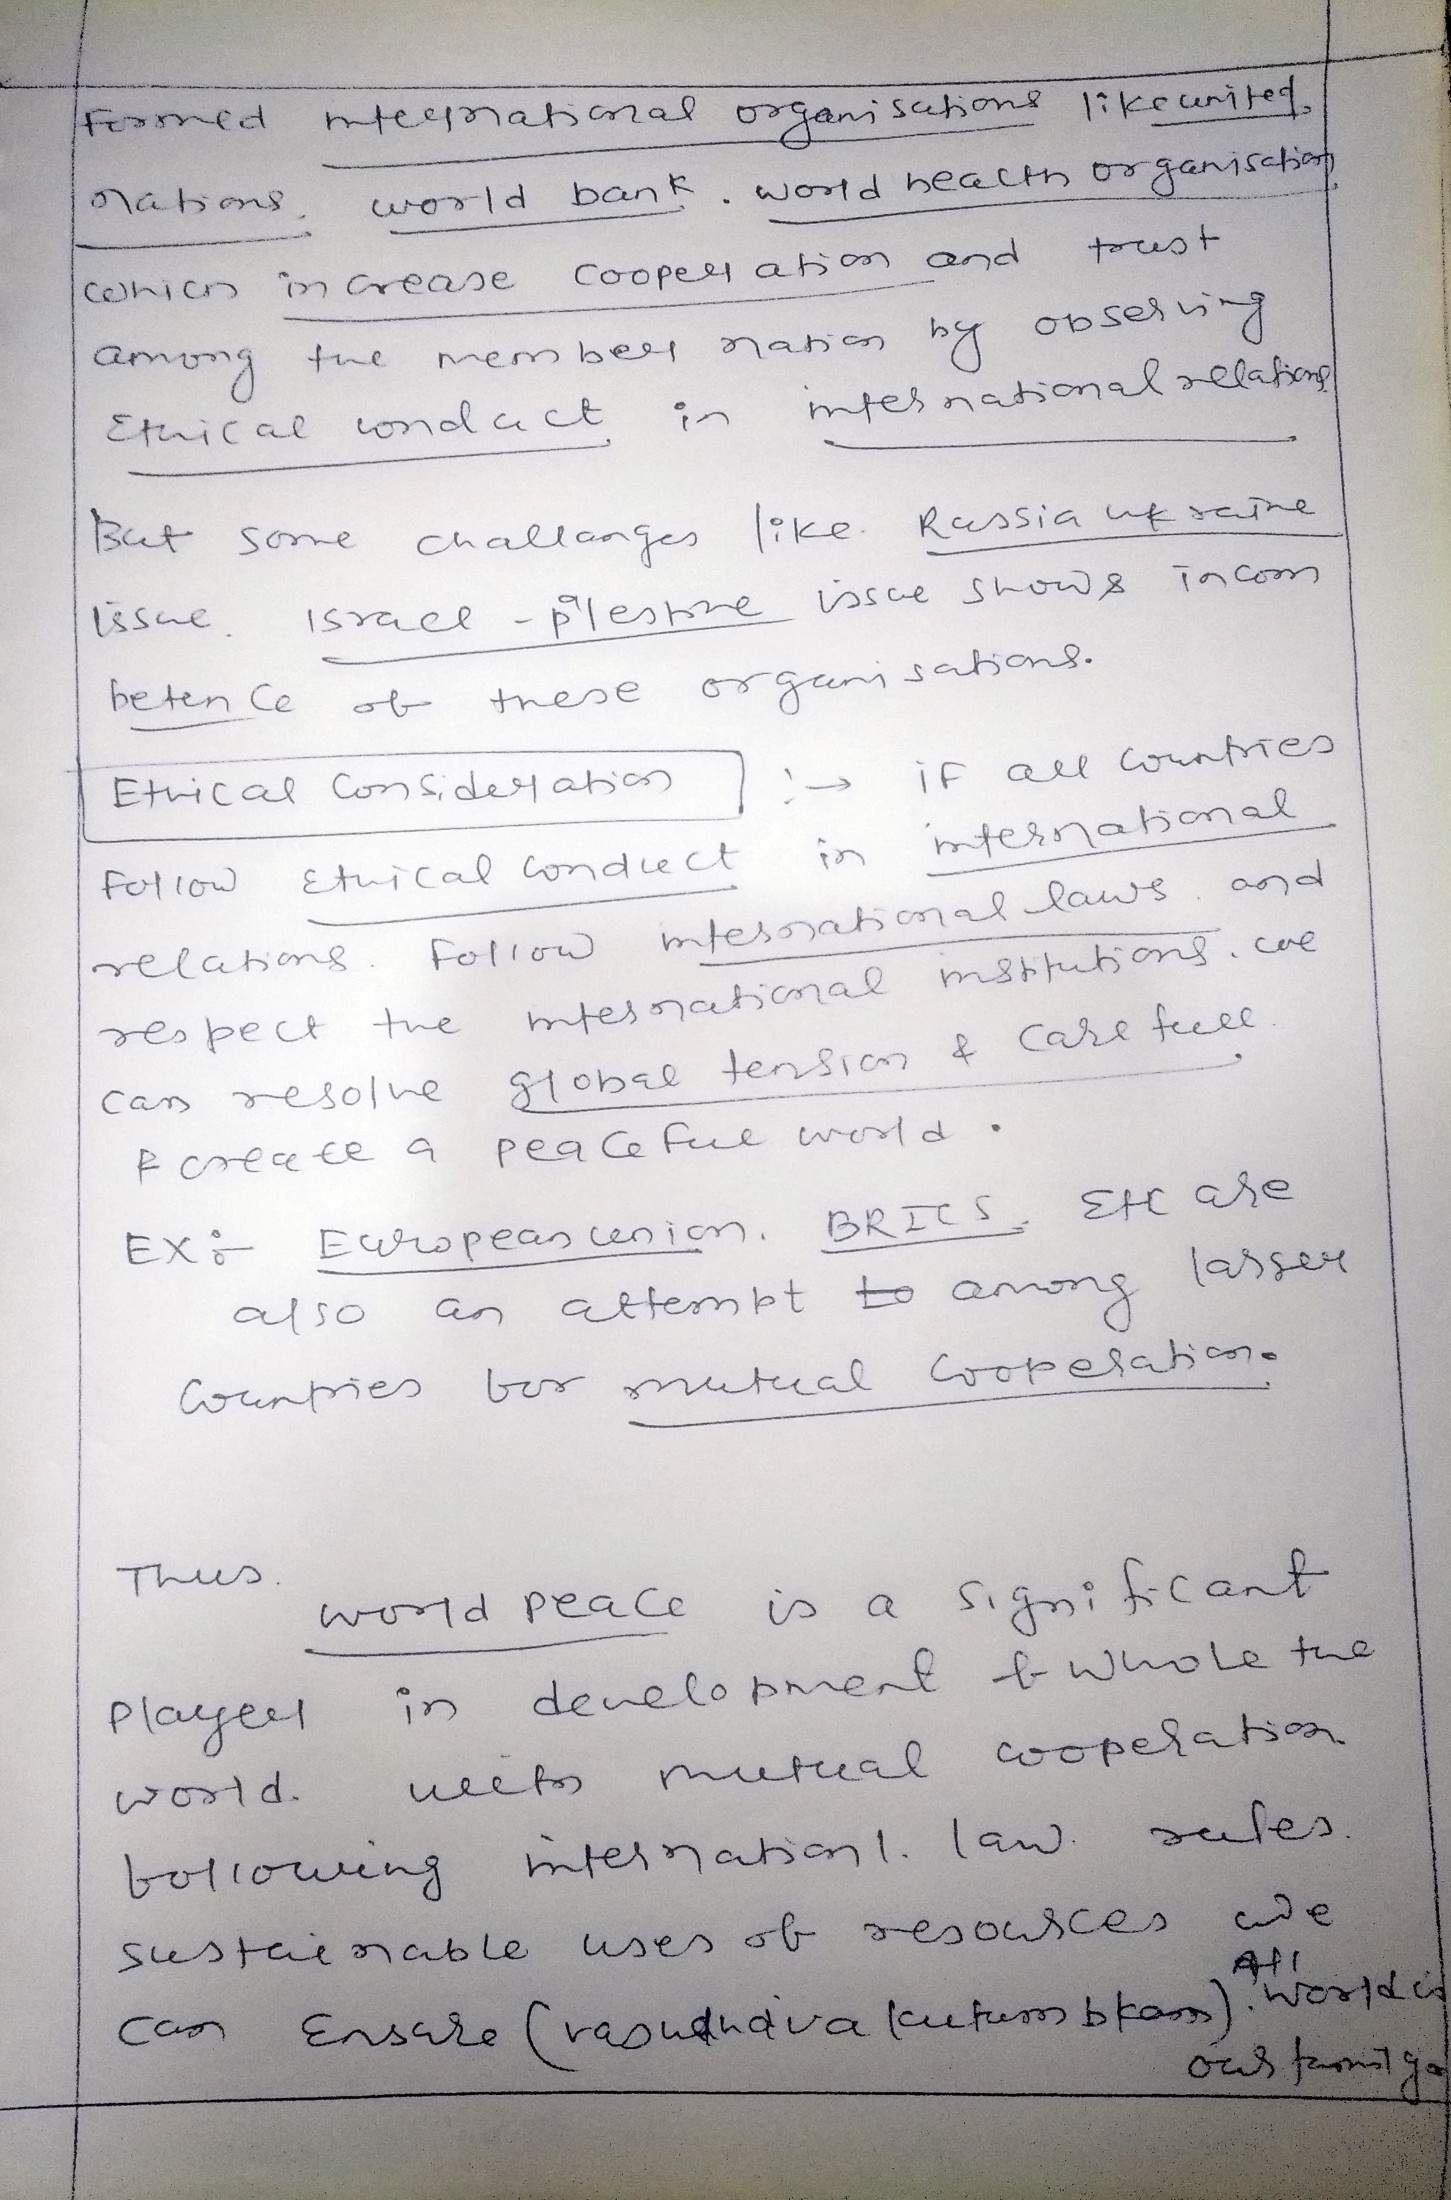 Formed international organisations like united
nations, world bank, world health organisation
which increase cooperation and trust
among the member nation by observing
Ethical conduct in international relations
But some challanges like Russia ukraine
issue, Israel - palestine issue shows incom
petence of these organisations.
Ethical Consideration :→ if all countries
Follow Ethical conduct in international
relations. Follow international laws and
respect the international institutions, we
can resolve global tension & care full
& create a peaceful world.
EX:- European union, BRICS, Etc are
also an attempt to among larger
countries for mutual cooperation.
Thus,
world peace is a significant
player in development of whole the
world. with mutual cooperation
following internationl. law. rules.
sustainable uses of resources we
can Ensure (vasudhaiva kutumbkam). All world is
our family.